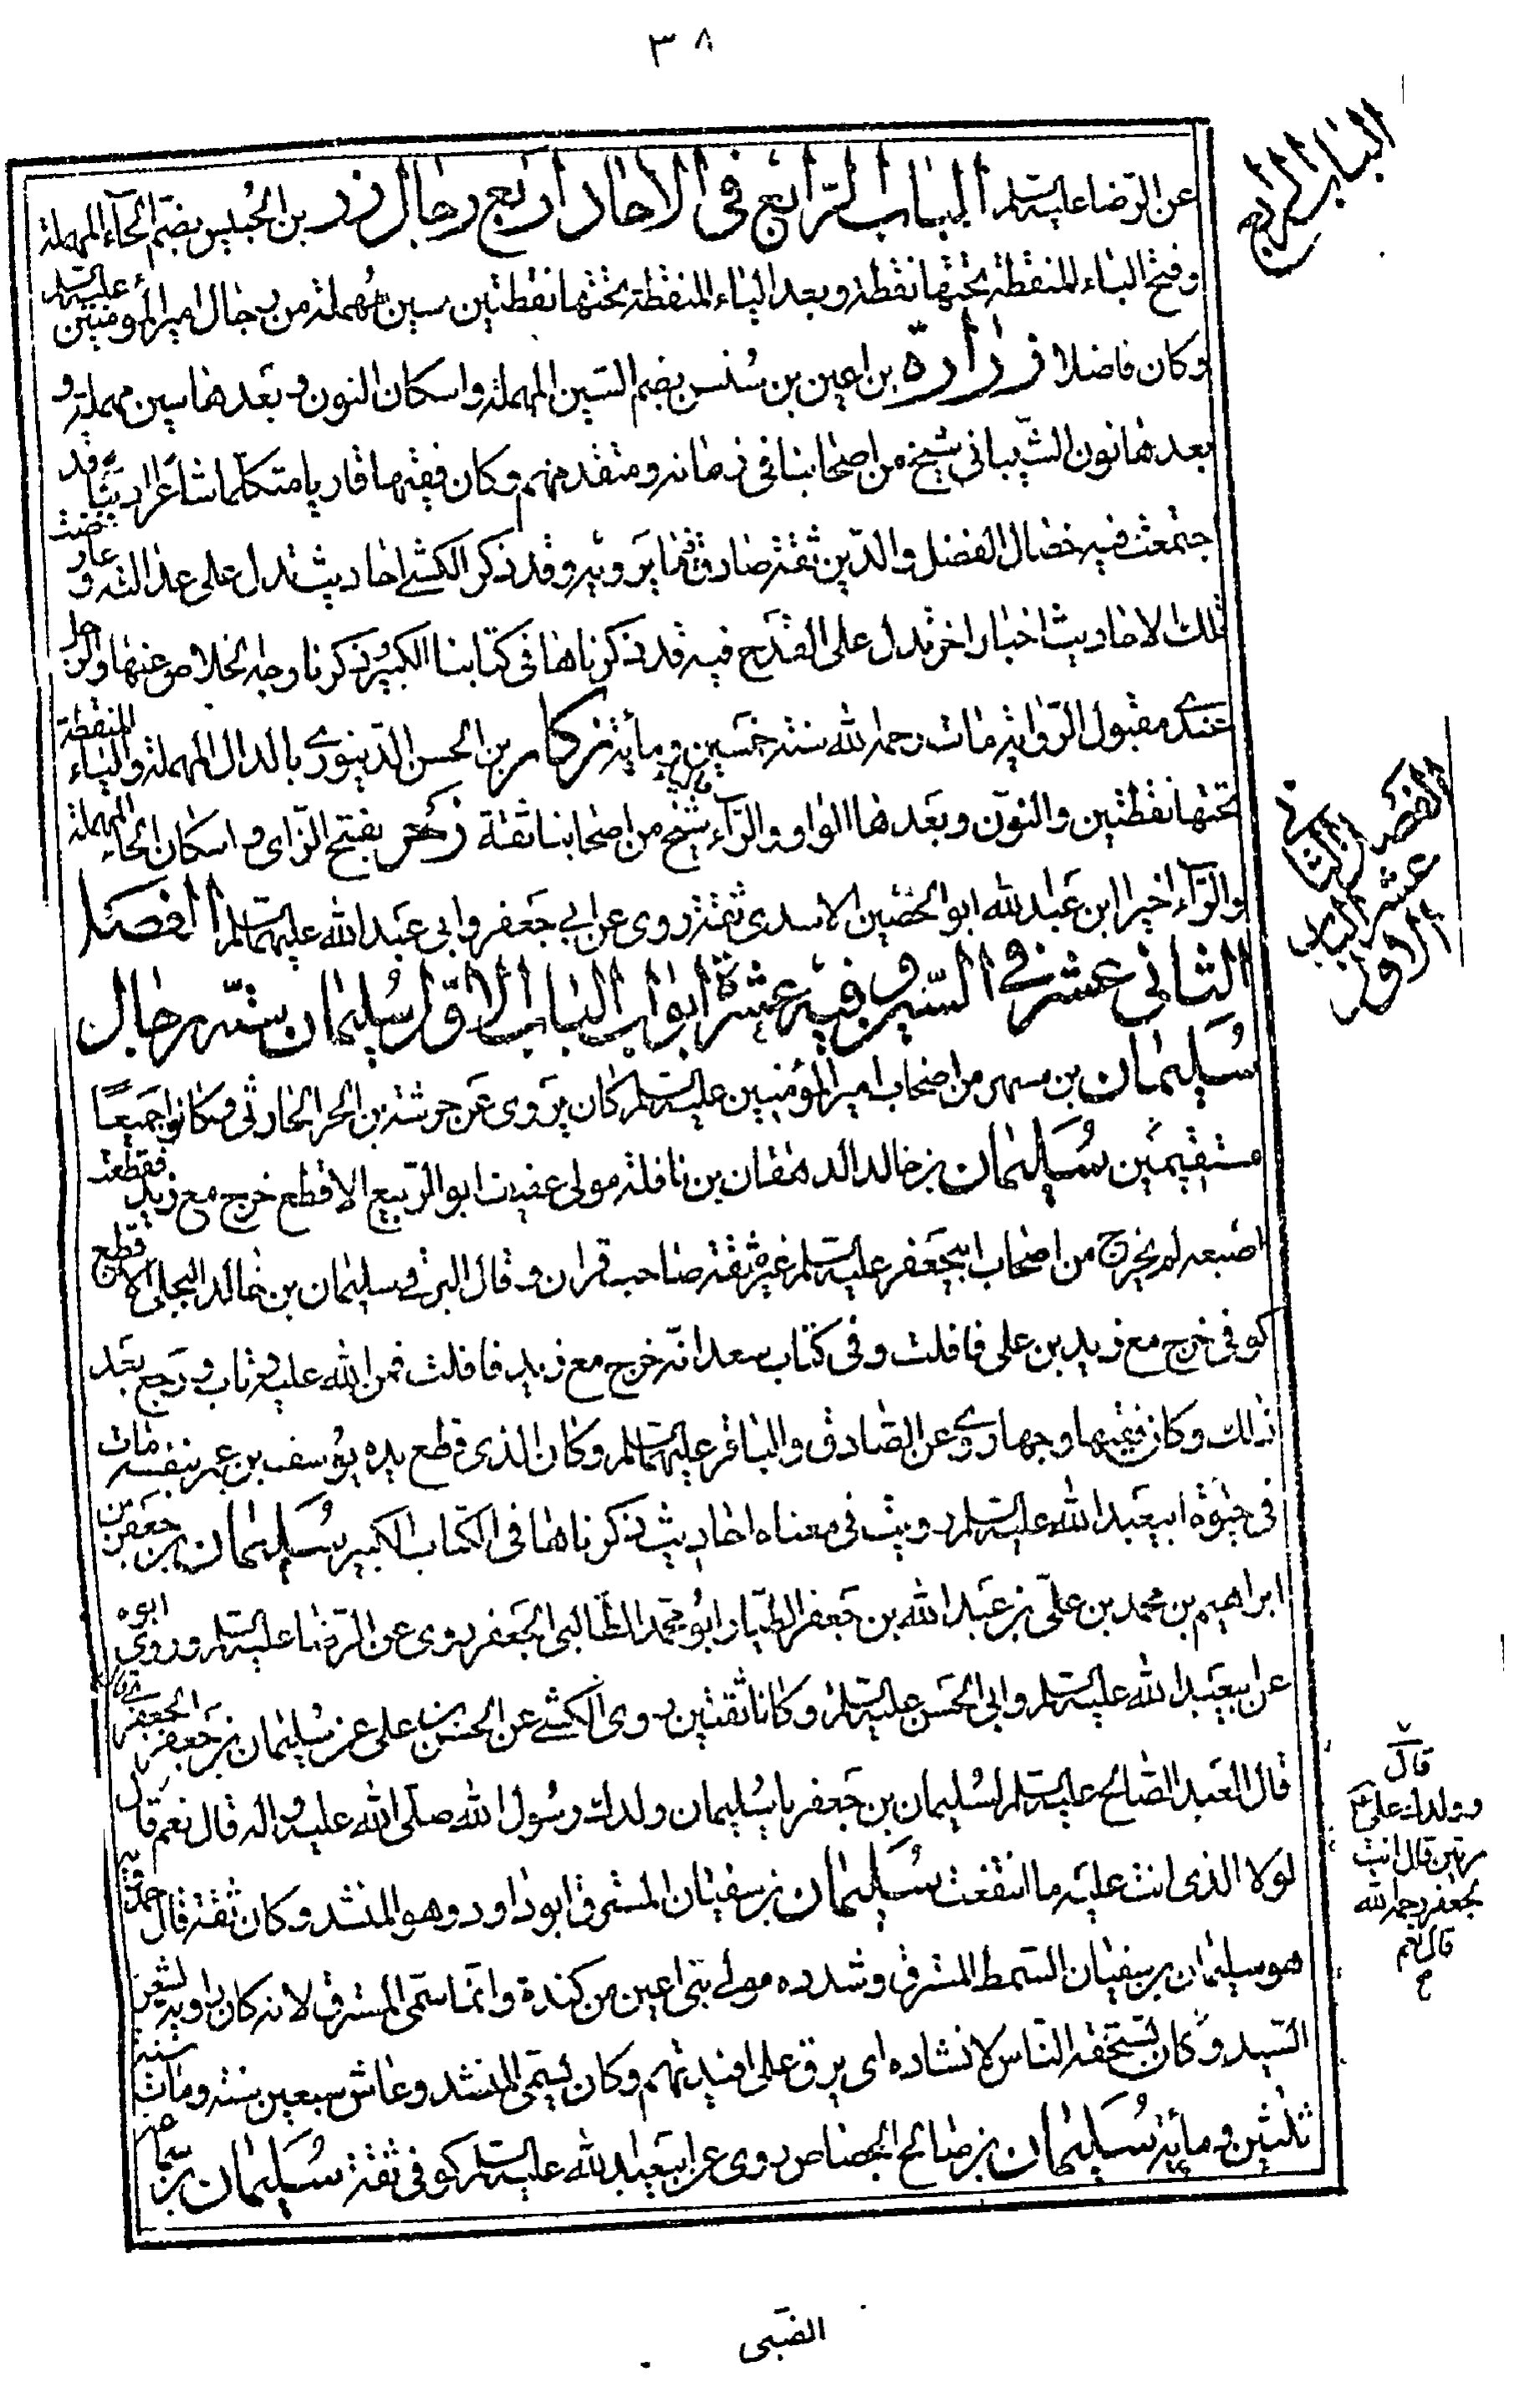 ٣٨
عن الرضا عليه السلم الباب الرابع في الاحاد اربع رجال زر بن الحبيس بضم الحاء المهملة
وفتح الباء المنقطة تحتها نقطة وبعد الياء المنقطة تحتها نقطتين سين مهملة من رجال امير المؤمنين عليه السلم
وكان فاضلا زرارة بن اعين بن سنسن بضم السين المهملة واسكان النون وبعدها سين مهملة و
بعدها نون الشيباني شيخ من اصحابنا في زمانه ومتقدمهم وكان فقيها قاريا متكلما شاعرا اديبا وقد
اجتمعت فيه خصال الفضل والدين ثقة صادق فيما يرويه وقد ذكر الكشي احاديث تدل على عدالته وعارضت
تلك الاحاديث اخبار اخر تدل على القدح فيه قد ذكرناها في كتابنا الكبير وذكرنا وجه الخلاص عنها والرجل
عندي مقبول الرواية مات رحمه الله سنة خمسين ومائة زكار بن الحسن الدينوري بالدال المهملة والياء المنقطة
تحتها نقطتين والنون وبعدها الواو والراء شيخ من اصحابنا ثقة زحر بفتح الزاى واسكان الحاء المهملة
والراء اخيرا ابن عبد الله ابو الحصين الاسدى ثقة روى عن ابي جعفر وابى عبد الله عليهما السلم الفصل
الثاني عشر في السين وفيه عشرة ابواب الباب الاول سليمان ستة رجال
سليمان بن مسهر من اصحاب امير المؤمنين عليه السلم كان يروى عن خرشة بن الحر الحارثى وكانوا جميعا
مستقيمين سليمان بن خالد الدهقان بن نافلة مولى عفيف ابو الربيع الاقطع خرج مع زيد فقطعت
اصبعه لم يخرج من اصحاب ابيجعفر عليه السلم غيره ثقة صاحب قران وقال البرقي سليمان بن خالد البجلى الاقطع
كوفى خرج مع زيد بن على فافلت وفى كتاب سعد انه خرج مع زيد فافلت فمن الله عليه وتاب ورجع بعد
ذلك وكان فقيها وجها روى عن الصادق والباقر عليهما السلم وكان الذى قطع يده يوسف بن عمر بنفسه مات
فى حيوة ابيعبد الله عليه السلم رويت فى معناه احاديث ذكرناها فى الكتاب الكبير سليمان بن جعفر بن
ابراهيم بن محمد بن على بن عبد الله بن جعفر الطيار ابو محمد الطالبى الجعفرى روى عن الرضا عليه السلم وروى ابوه
عن ابيعبد الله عليه السلم وابى الحسن عليه السلم وكانا ثقتين روى الكشي عن الحسن بن على عن سليمان بن جعفر الجعفري قال
قال العبد الصالح عليه السلم لسليمان بن جعفر يا سليمان ولدك رسول الله صلى الله عليه واله قال نعم قال
لولا الذى انت عليه ما انتفعت سليمان بن سفيان المسترق ابو داود وهو المنشد وكان ثقة قال حمدويه
هو سليمان بن سفيان السمط المسترق وشدده مولى بنى اعين من كندة وانما سمى المسترق لانه كان راوية لشعر
السيد وكان تستخفه الناس لانشاده اى يرق على افئدتهم وكان يسمى المنشد وعاش سبعين سنة ومات سنة
ثلثين ومائة سليمان بن صالح الجصاص روى عن ابيعبد الله عليه السلم كوفى ثقة سليمان بن سماعة
الباب الرابع
الفصل الثاني
عشر الباب
الاول
قال
وولدك على
مرتين قال انت
لجعفر رحمه الله
قال نعم
الضبى